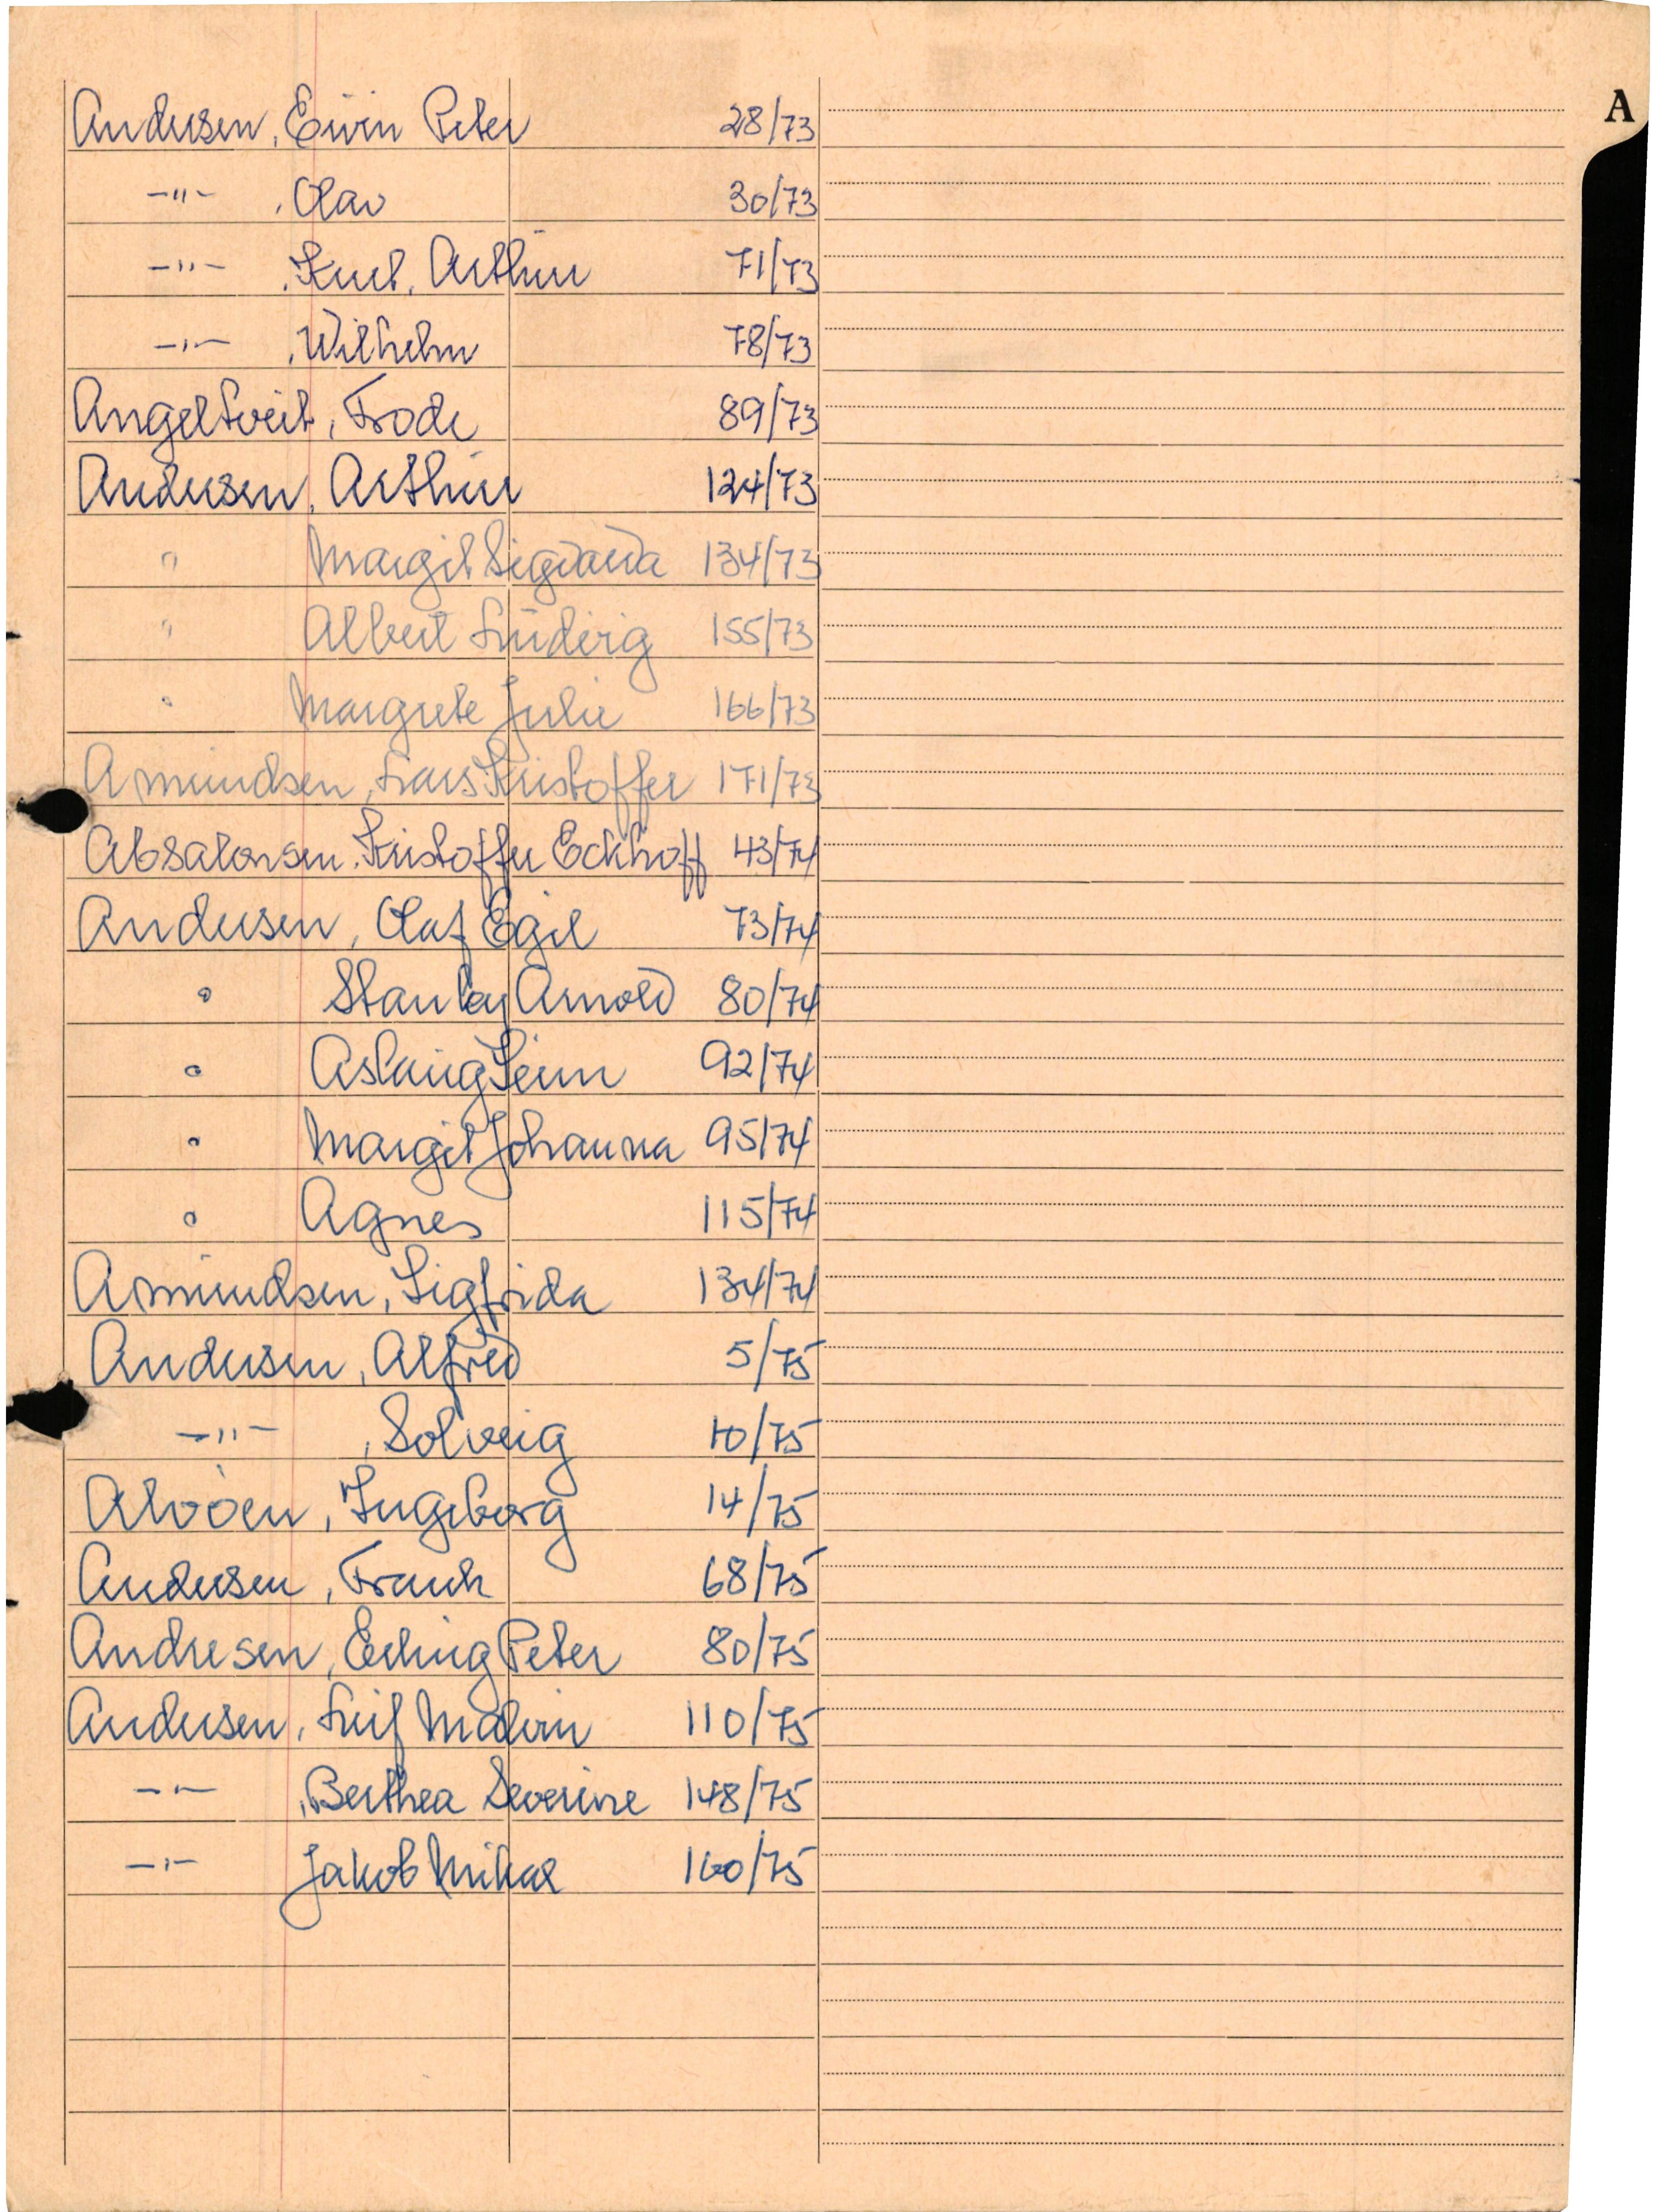 A
Andersen, Eivin Peter 28/73
-"- , Olav 30/73
-"- , Kurt, Arthur 71/73
-"- , Wilhelm 78/73
Angeltveit, Frode 89/73
Andersen, Arthur 124/73
" Margit Sigvarda 134/73
" Albert Ludvig 155/73
" Margrete Julie 166/73
Amundsen, Lars Kristoffer 171/73
Absalonsen, Kristoffer Eckhoff 43/74
Andersen, Olaf Egil 73/74
" Stanley Arnold 80/74
" Aslaug 92/74
" Margit Johanna 95/74
" Agnes 115/74
Amundsen, Sigfrida 134/74
Andersen, Alfred 5/75
-"- , Solveig 10/75
Alvöen, Ingeborg 14/75
Andersen, Frank 68/75
Andresen, Erling Peter 80/75
Andersen, Leif Malvin 110/75
-"- , Berthea Severine 148/75
-"- Jakob Mikal 160/75